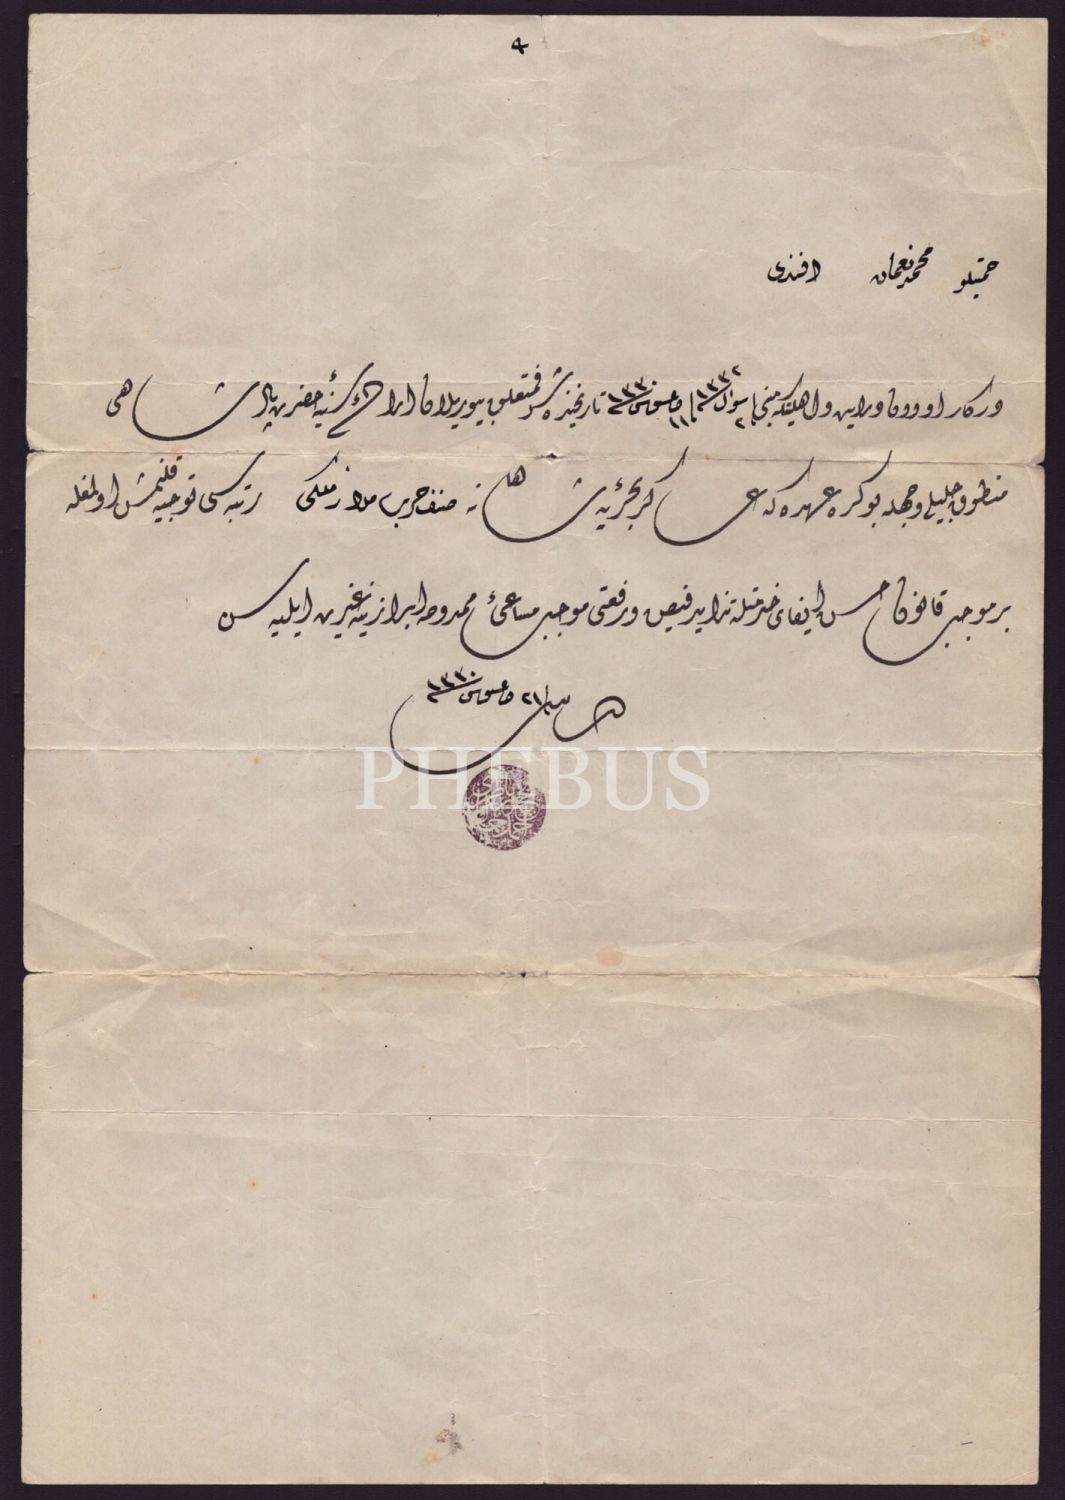 حمیتلو محمد نعمان افندی
دركار اولان درایت و اهلیتكه مبنی ٢ شوال ١٣٣٢ و ١١ اغستوس ١٣٣٠ تاریخنده شرفمتعلق بیوریلان ارادۀ سنیۀ حضرت پادشاهی
منطوق جلیلی وجهله بو كره عهده كه عساكر بحریۀ شاهانه صنف حرب ملازملكی رتبه سی توجیه قلنمش اولمغله
بر موجب قانون حسن ایفای خدمتله تزاید فیض و رفعتی موجب مساعئ ممدوحه ابرازینه غیرت ایلیه سن
٢١ اغستوس ١٣٣٠
PHEBUS